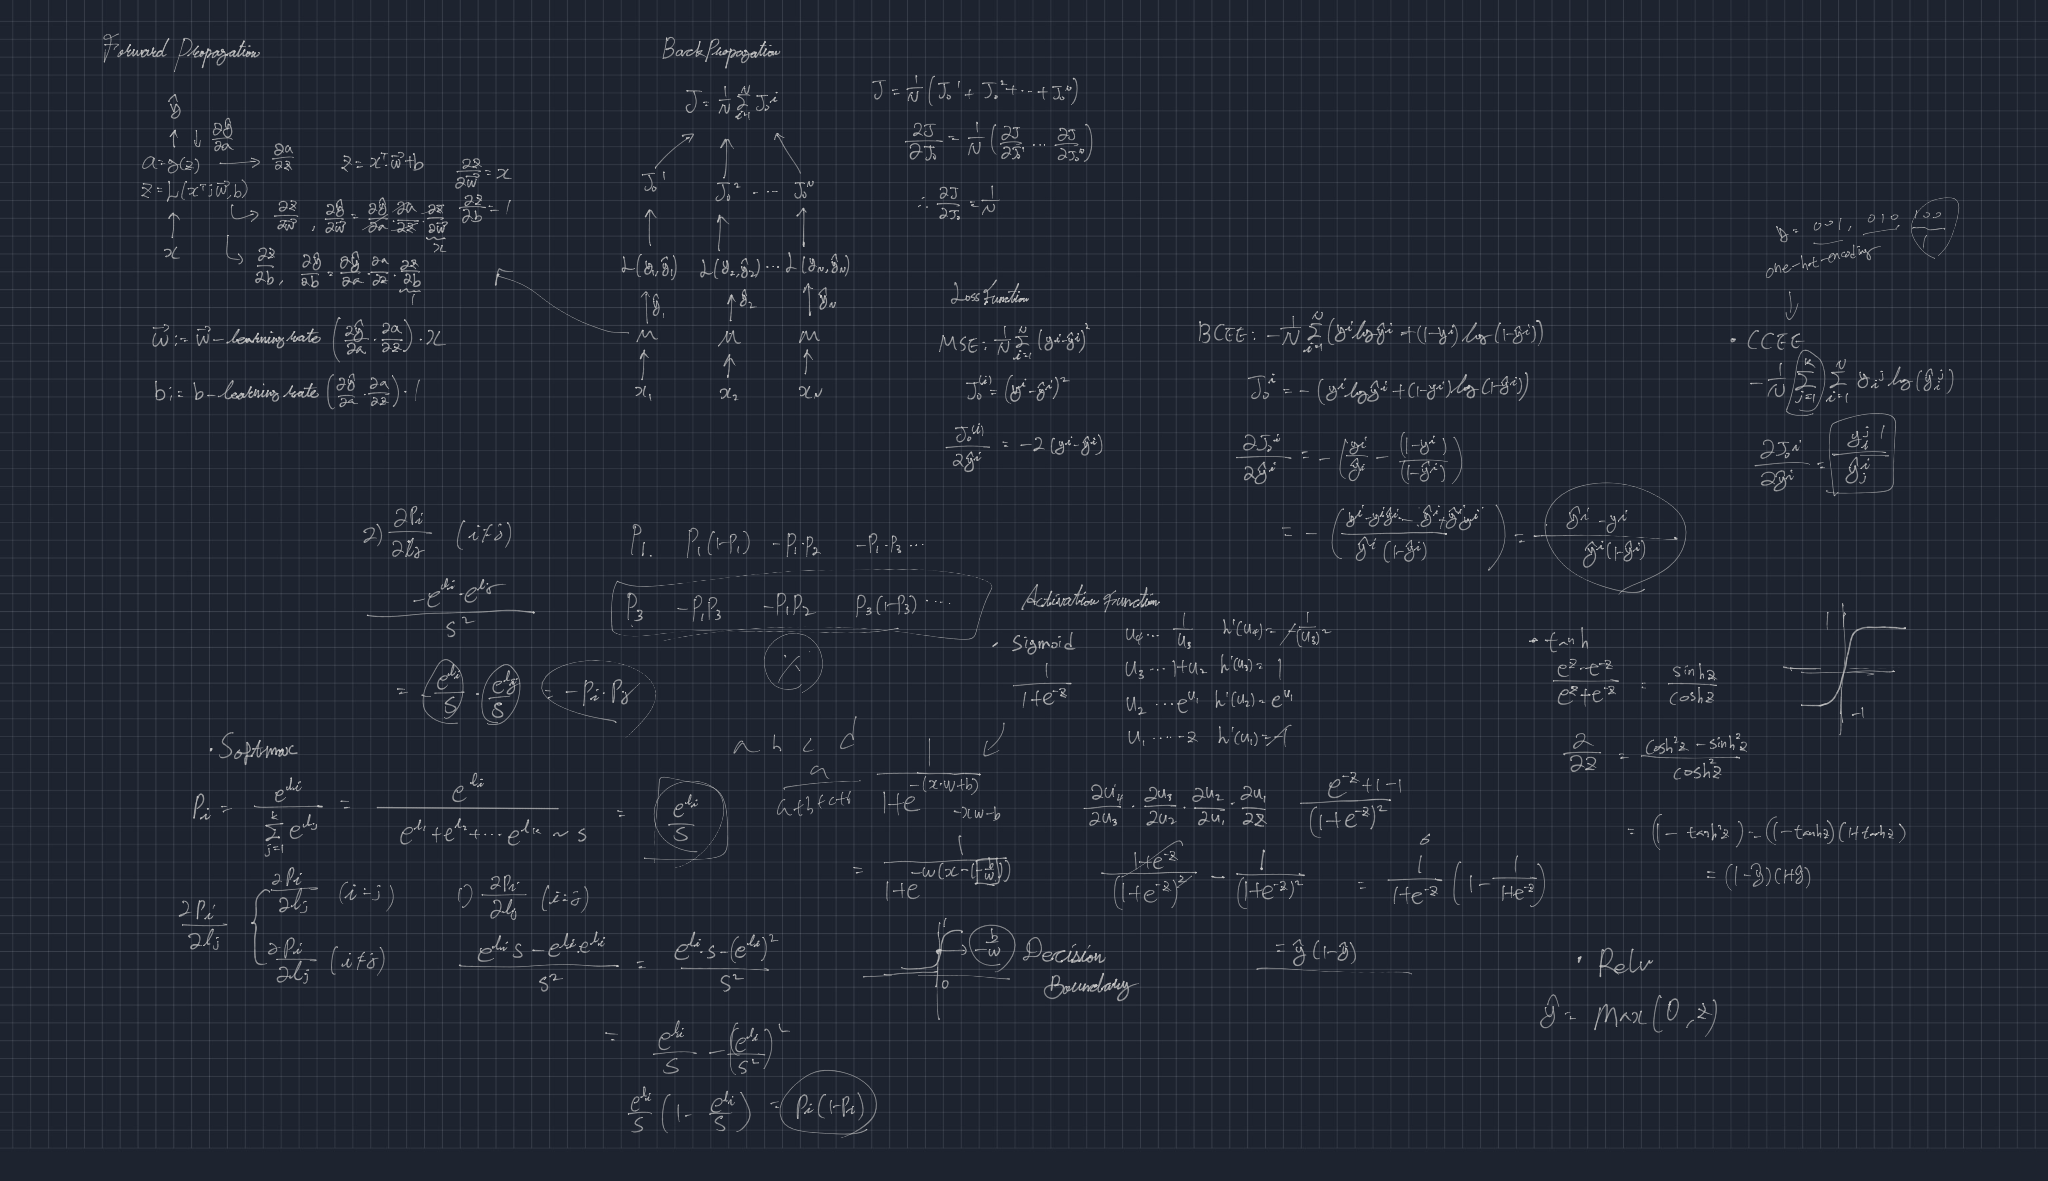 Forward Propagation
ŷ
↑ ↓ ∂ŷ/∂a
a=g(z) → ∂a/∂z
z = xᵀ·w⃗+b
∂z/∂w⃗ = x
z=L(xᵀ; w⃗, b)
∂z/∂b = 1
∂z/∂w⃗, ∂ŷ/∂w⃗ = ∂ŷ/∂a · ∂a/∂z · ∂z/∂w⃗
x
x
∂z/∂b, ∂ŷ/∂b = ∂ŷ/∂a · ∂a/∂z · ∂z/∂b
1
w⃗ := w⃗ - learning rate (∂ŷ/∂a · ∂a/∂z) · x
b := b - learning rate (∂ŷ/∂a · ∂a/∂z) · 1
Back Propagation
J = 1/N Σ_{i=1}^{N} J₀ⁱ
J₀¹ J₀² ... J₀ᴺ
L(y₁,ŷ₁) L(y₂,ŷ₂) ... L(y_N,ŷ_N)
ŷ₁ ŷ₂ ŷ_N
M M M
x₁ x₂ x_N
J = 1/N (J₀¹ + J₀² + ... + J₀ᴺ)
∂J/∂J₀ = 1/N (∂J/∂J₀¹ ... ∂J/∂J₀ᴺ)
∴ ∂J/∂J₀ = 1/N
Loss Function
MSE: 1/N Σ_{i=1}^{N} (yⁱ-ŷⁱ)²
J₀⁽ⁱ⁾ = (yⁱ-ŷⁱ)²
J₀⁽ⁱ⁾/∂ŷⁱ = -2(yⁱ-ŷⁱ)
BCEE: -1/N Σ_{i=1}^{N} (yⁱ log ŷⁱ + (1-yⁱ) log (1-ŷⁱ))
J₀ⁱ = -(yⁱ log ŷⁱ + (1-yⁱ) log (1-ŷⁱ))
∂J₀ⁱ/∂ŷⁱ = -(yⁱ/ŷⁱ - (1-yⁱ)/(1-ŷⁱ))
= -((yⁱ-yⁱŷⁱ - ŷⁱ+ŷⁱyⁱ)/(ŷⁱ(1-ŷⁱ))) = (ŷⁱ-yⁱ)/(ŷⁱ(1-ŷⁱ))
y = 001, 010, 100
1
one-hot-encoding
· CCEE
-1/N Σ_{j=1}^{k} Σ_{i=1}^{N} yᵢʲ log(ŷᵢʲ)
∂J₀ⁱ/∂ŷⁱ = yᵢʲ 1/ŷⱼⁱ
2) ∂Pi/∂lj (i≠j)
-e^{li}·e^{lj}/S²
= e^{li}/S · e^{lj}/S = -Pi·Pj
P₁. P₁(1-P₁) -P₁·P₂ -P₁·P₃ ...
P₃ -P₁P₃ -P₁P₂ P₃(1-P₃) ....
· Softmax
Pi = e^{li}/Σ_{j=1}^{k} e^{lj} = e^{li}/(e^{l1}+e^{l2}+...e^{lk} ~ S) = e^{li}/S
∂Pi/∂lj { ∂Pi/∂lj (i=j)
∂Pi/∂lj (i≠j)
1) ∂Pi/∂lj (i=j)
(e^{li}S - e^{li}·e^{li})/S² = (e^{li}·S-(e^{li})²)/S²
= e^{li}/S - (e^{li}/S²)²
e^{li}/S (1- e^{li}/S) = Pi(1-Pi)
a b c d
a/(a+b+c+d)
1/(1+e^{-(x·w+b)})
-xw-b
= 1/(1+e^{-w(x-(-b/w))})
1
-b/w
0
Decision
Boundary
Activation Function
· Sigmoid
1/(1+e^{-z})
u₄ ... 1/u₃ h'(u₄) = -1/(u₃)²
u₃ ... 1+u₂ h'(u₃) = 1
u₂ ... e^{u₁} h'(u₂) = e^{u₁}
u₁ ..... -z h'(u₁) = -1
∂u₄/∂u₃ · ∂u₃/∂u₂ · ∂u₂/∂u₁ · ∂u₁/∂z (e^{-z}+1-1)/(1+e^{-z})²
(1+e^{-z})/(1+e^{-z})² - 1/(1+e^{-z})² = 1/(1+e^{-z}) (1 - 1/(1+e^{-z}))
= ŷ(1-ŷ)
· tanh
(e^z-e^{-z})/(e^z+e^{-z}) = sinhz/coshz
1
-1
∂/∂z = (cosh²z - sinh²z)/cosh²z
= (1-tanh²z) = (1-tanhz)(1+tanhz)
= (1-ŷ)(1+ŷ)
· Relu
ŷ = Max(0,z)